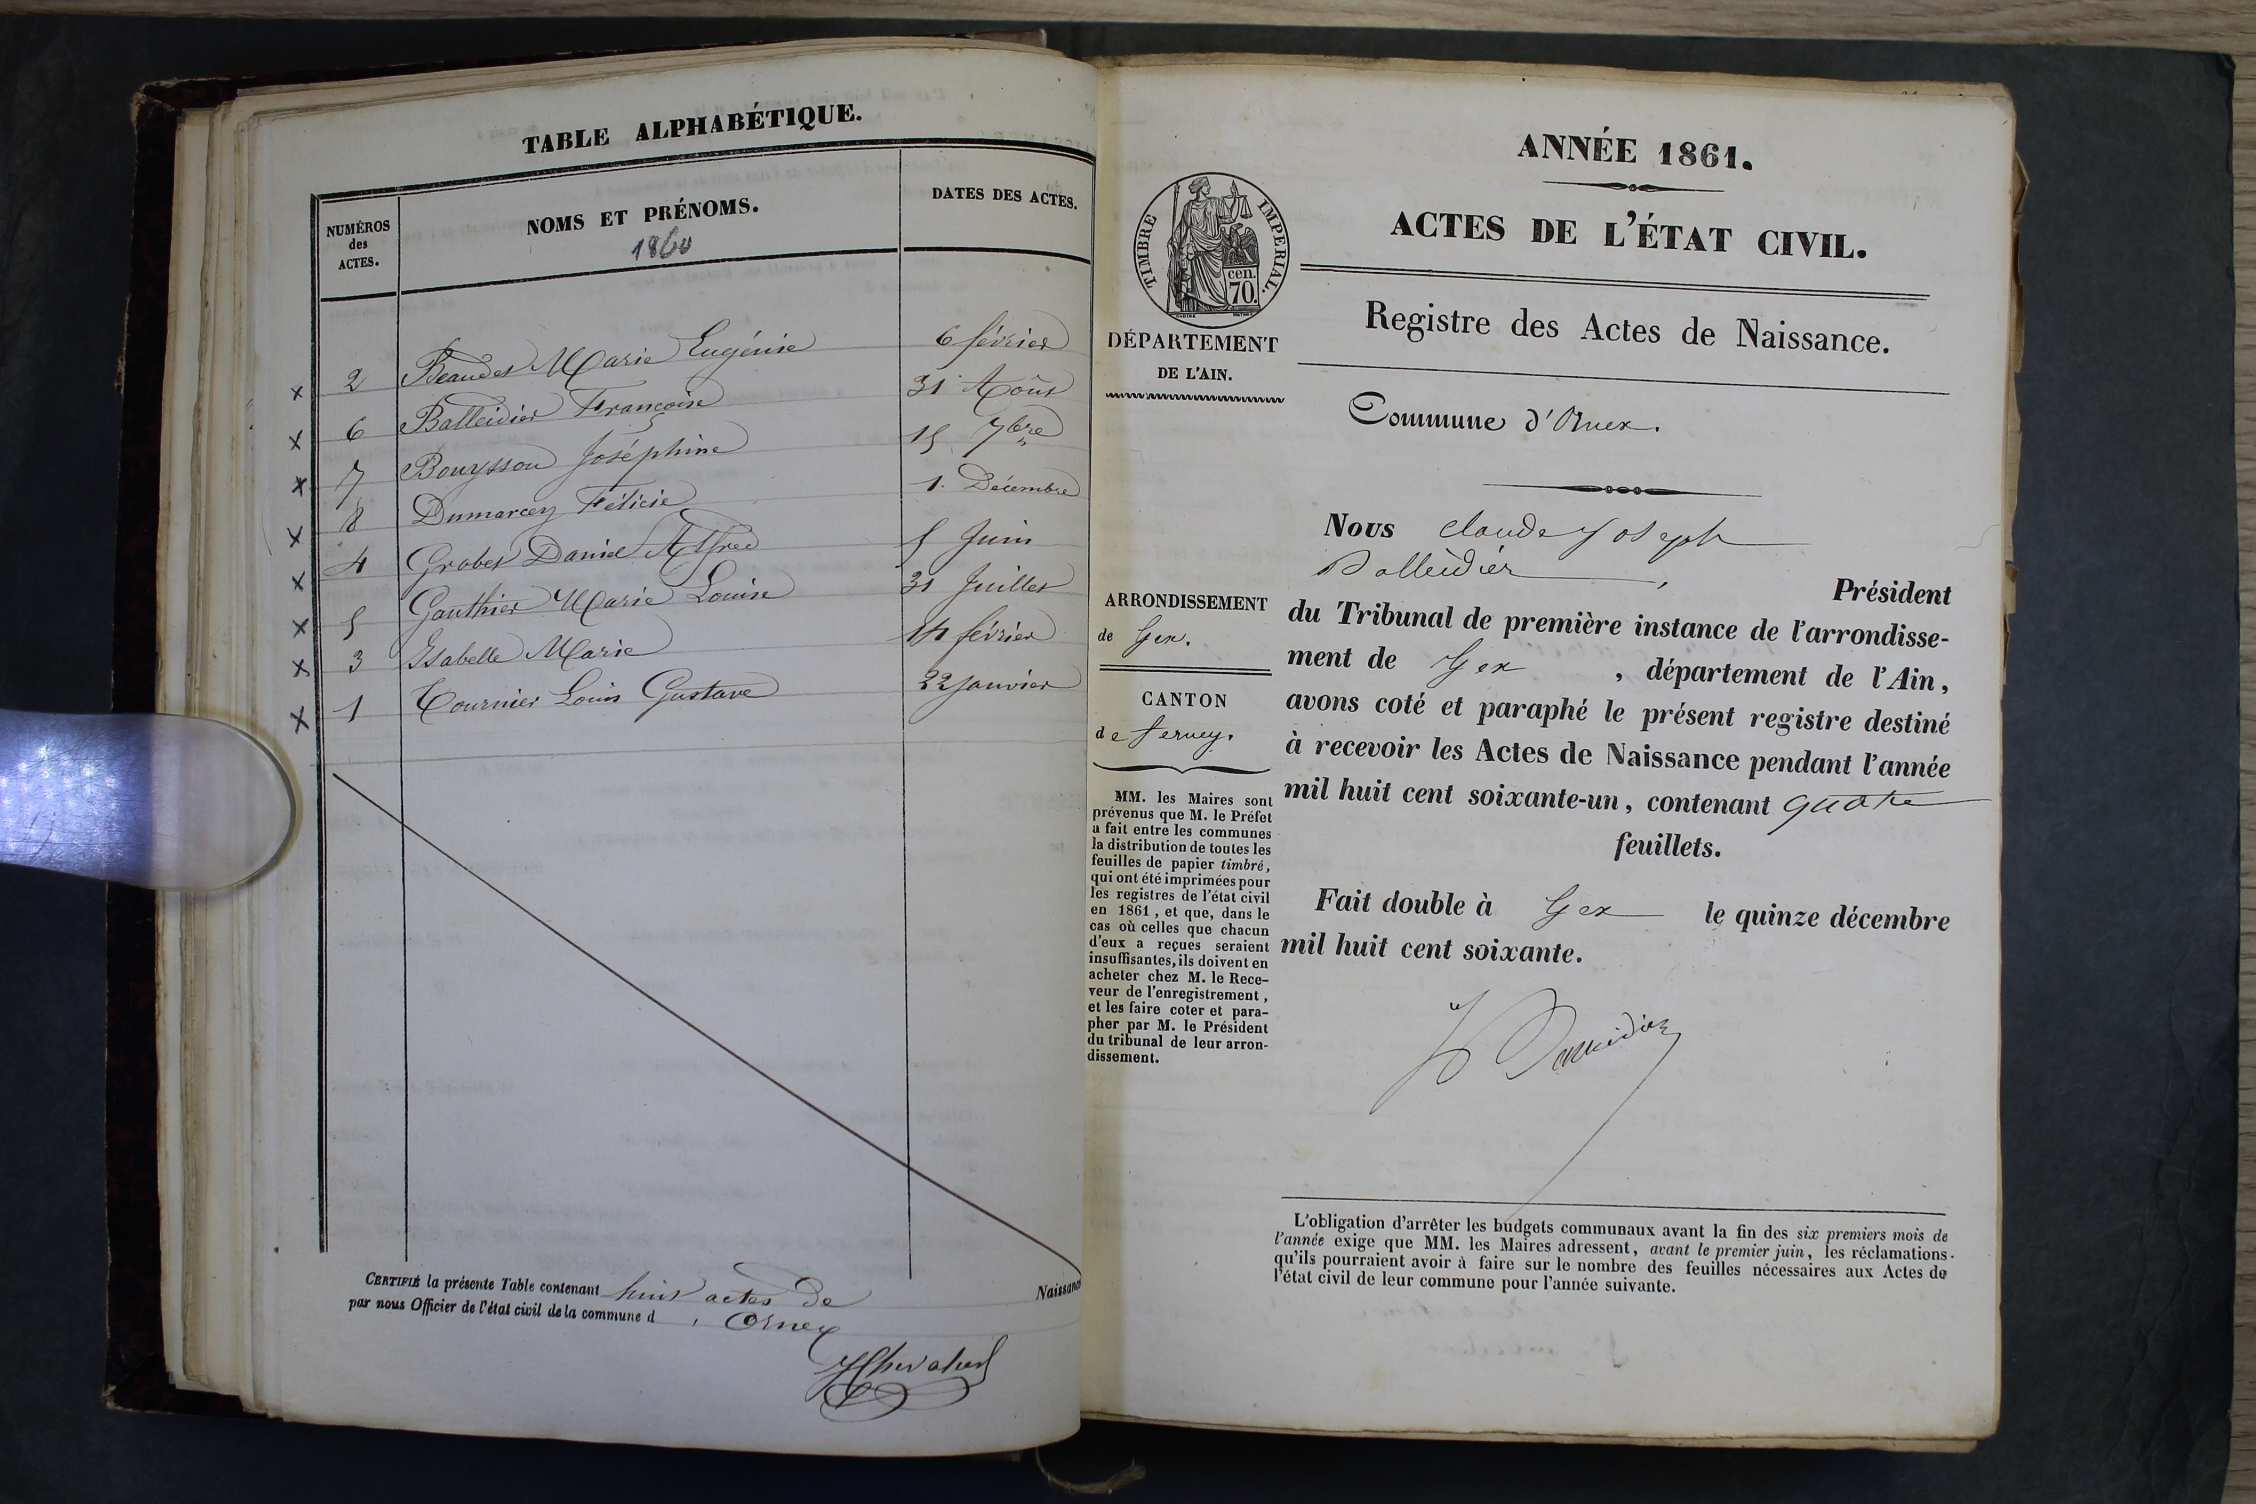 TABLE ALPHABÉTIQUE.
NUMÉROS
des
ACTES.
NOMS ET PRÉNOMS.
1860
DATES DES ACTES.
x 2 Beaudet Marie Eugénie 6 février
x 6 Balleidier Françoise 31 Août
x 7 Bouysson Joséphine 15 7bre
x 8 Dumarcey Félicie 1. Décembre
x 4 Grobet Daniel Alfred 5 Juin
x 5 Gauthier Marie Louise 31 Juillet
x 3 Isabelle Marie 14 février
x 1 Tournier Louis Gustave 22 janvier
CERTIFIÉ la présente Table contenant huit actes de Naissance
par nous Officier de l'état civil de la commune d' Ornex
ANNÉE 1861.
ACTES DE L'ÉTAT CIVIL.
TIMBRE IMPERIAL.
cen.
70.
DÉPARTEMENT
DE L'AIN.
Registre des Actes de Naissance.
Commune d'Ornex.
ARRONDISSEMENT
de Gex.
CANTON
de ferney.
MM. les Maires sont
prévenus que M. le Préfet
a fait entre les communes
la distribution de toutes les
feuilles de papier timbré,
qui ont été imprimées pour
les registres de l'état civil
en 1861, et que, dans le
cas où celles que chacun
d'eux a reçues seraient
insuffisantes, ils doivent en
acheter chez M. le Rece-
veur de l'enregistrement,
et les faire coter et para-
pher par M. le Président
du tribunal de leur arron-
dissement.
Nous claude Joseph
Balleidier, Président
du Tribunal de première instance de l'arrondisse-
ment de Gex, département de l'Ain,
avons coté et paraphé le présent registre destiné
à recevoir les Actes de Naissance pendant l'année
mil huit cent soixante-un, contenant quatre
feuillets.
Fait double à Gex le quinze décembre
mil huit cent soixante.
L'obligation d'arrêter les budgets communaux avant la fin des six premiers mois de
l'année exige que MM. les Maires adressent, avant le premier juin, les réclamations
qu'ils pourraient avoir à faire sur le nombre des feuilles nécessaires aux Actes de
l'état civil de leur commune pour l'année suivante.